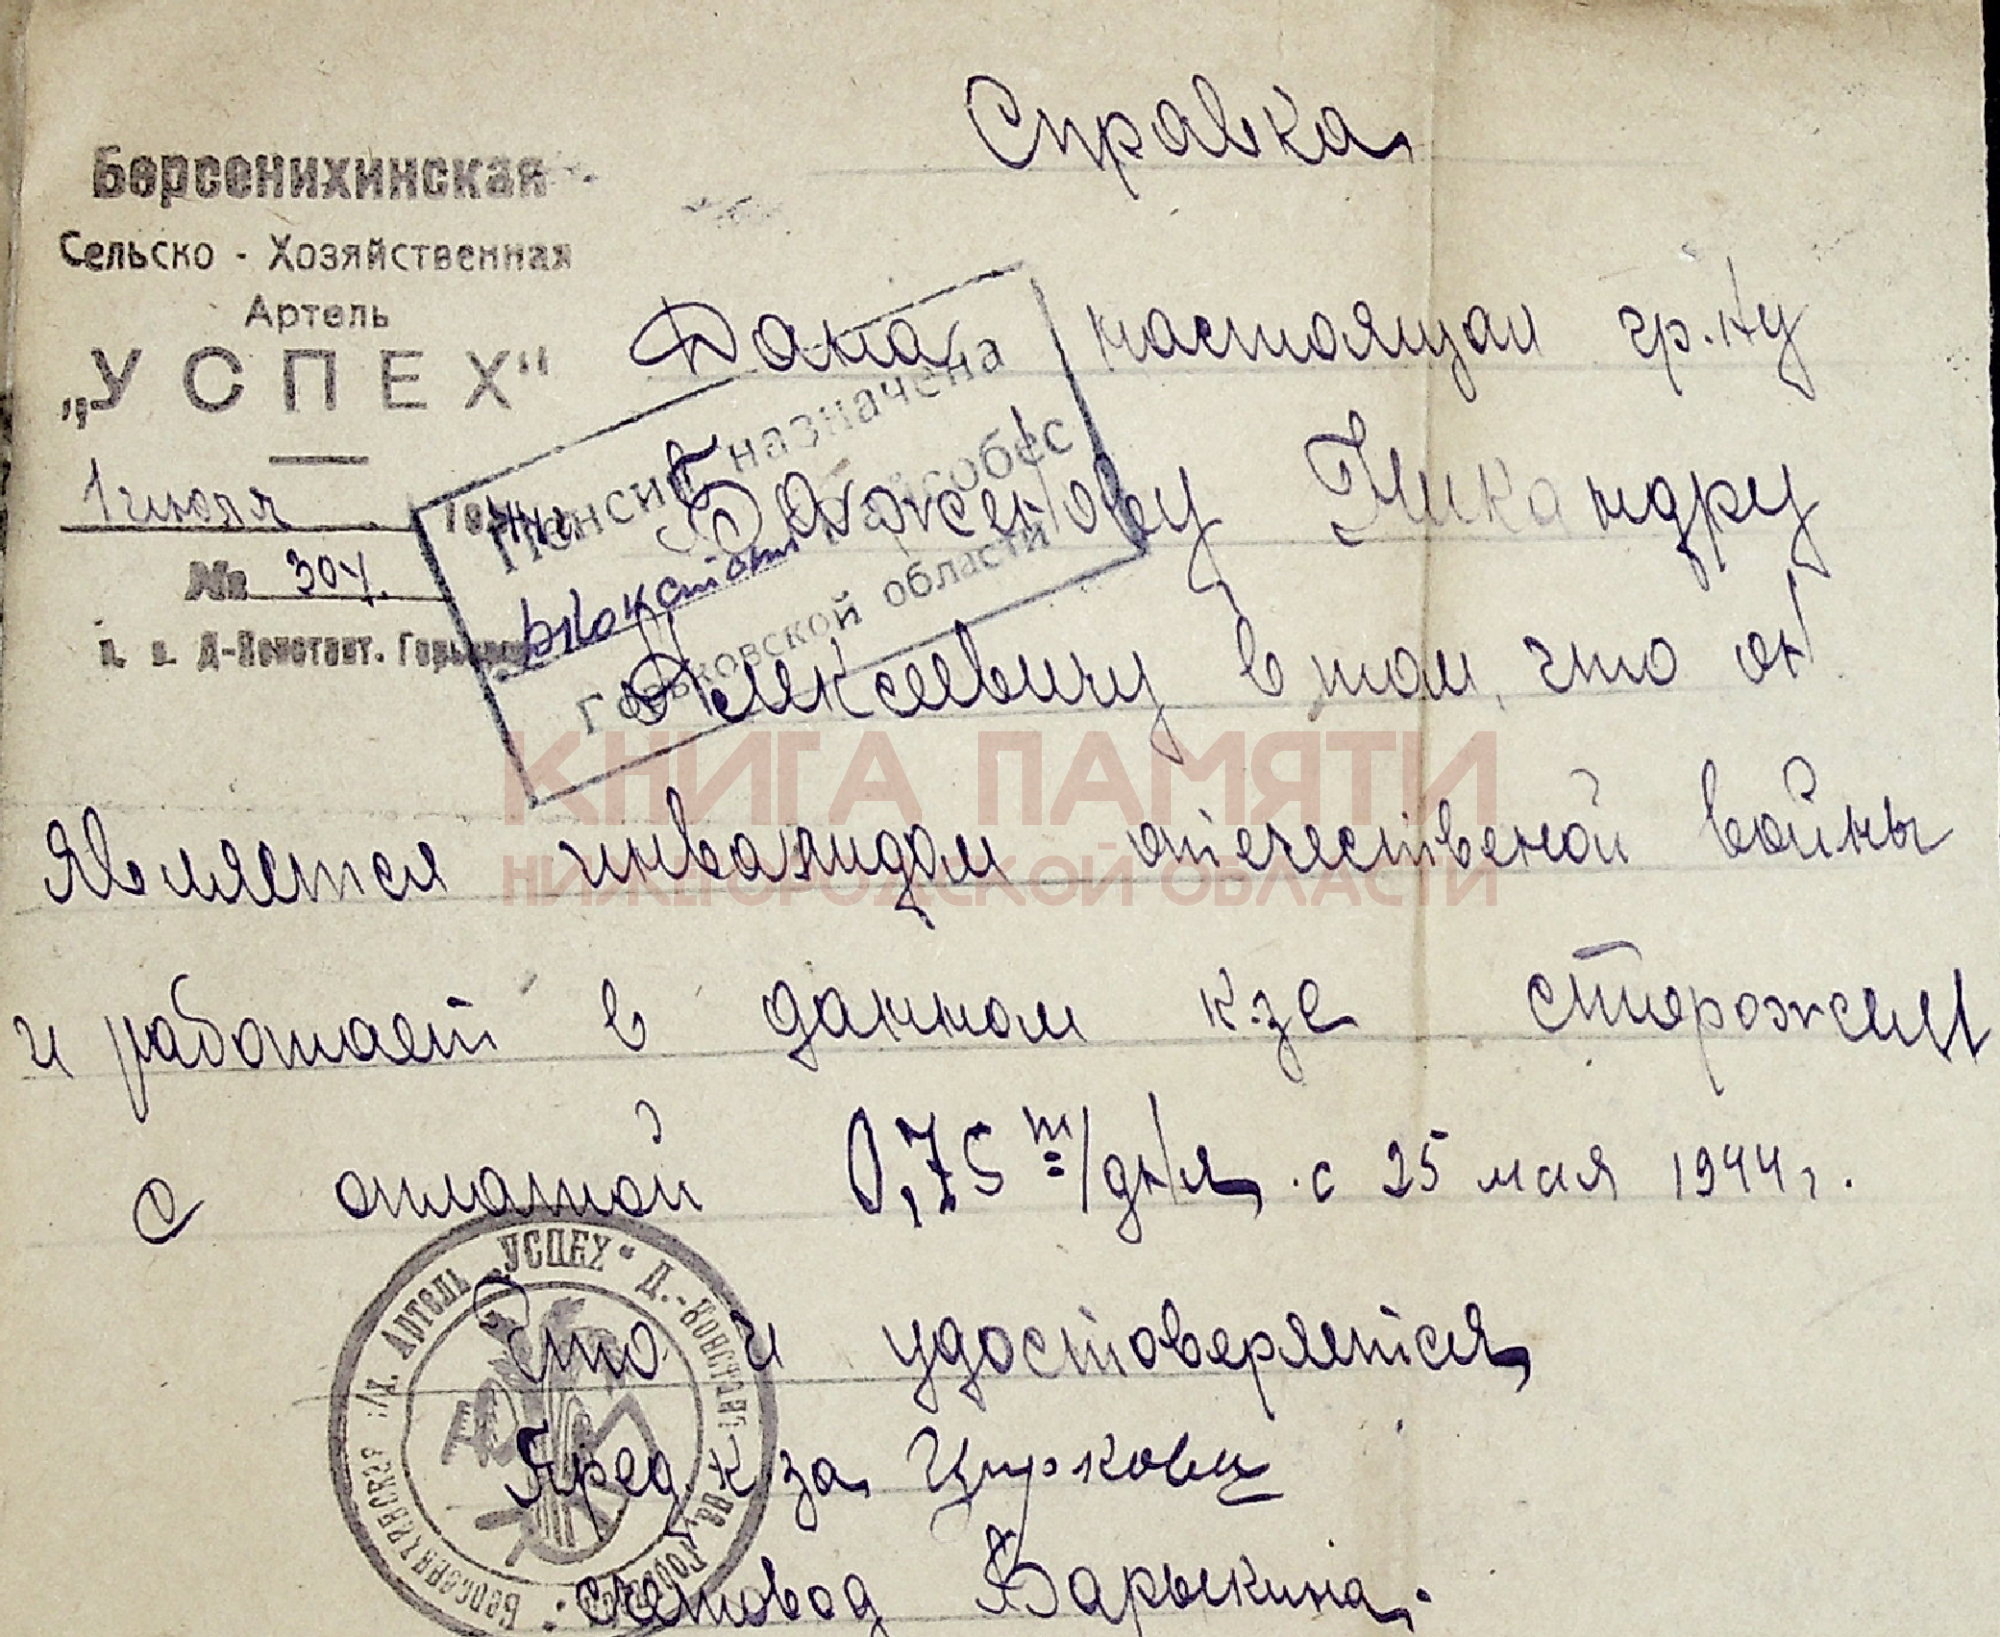 Справка
Борсонихинская
Сельско - Хозяйственная
Артель
„УСПЕХ“
1 июля 1944 г.
№ 307.
п. о. Д-Констант. Горьков
Пенсия назначена
райсобес
Горьковской области
Дана настоящая гр.ну
Баженову Никандру
Алексеевичу в том, что он
является инвалидом отечественой войны
и работает в данном к-зе сторожем
с оплатой 0,75 т/дня с 25 мая 1944 г.
Что и удостоверяется
Пред к-за Цыркова
счетовод Барыкина.
Артель „УСПЕХ“ Д.-Констант
КНИГА ПАМЯТИ
НИЖЕГОРОДСКОЙ ОБЛАСТИ